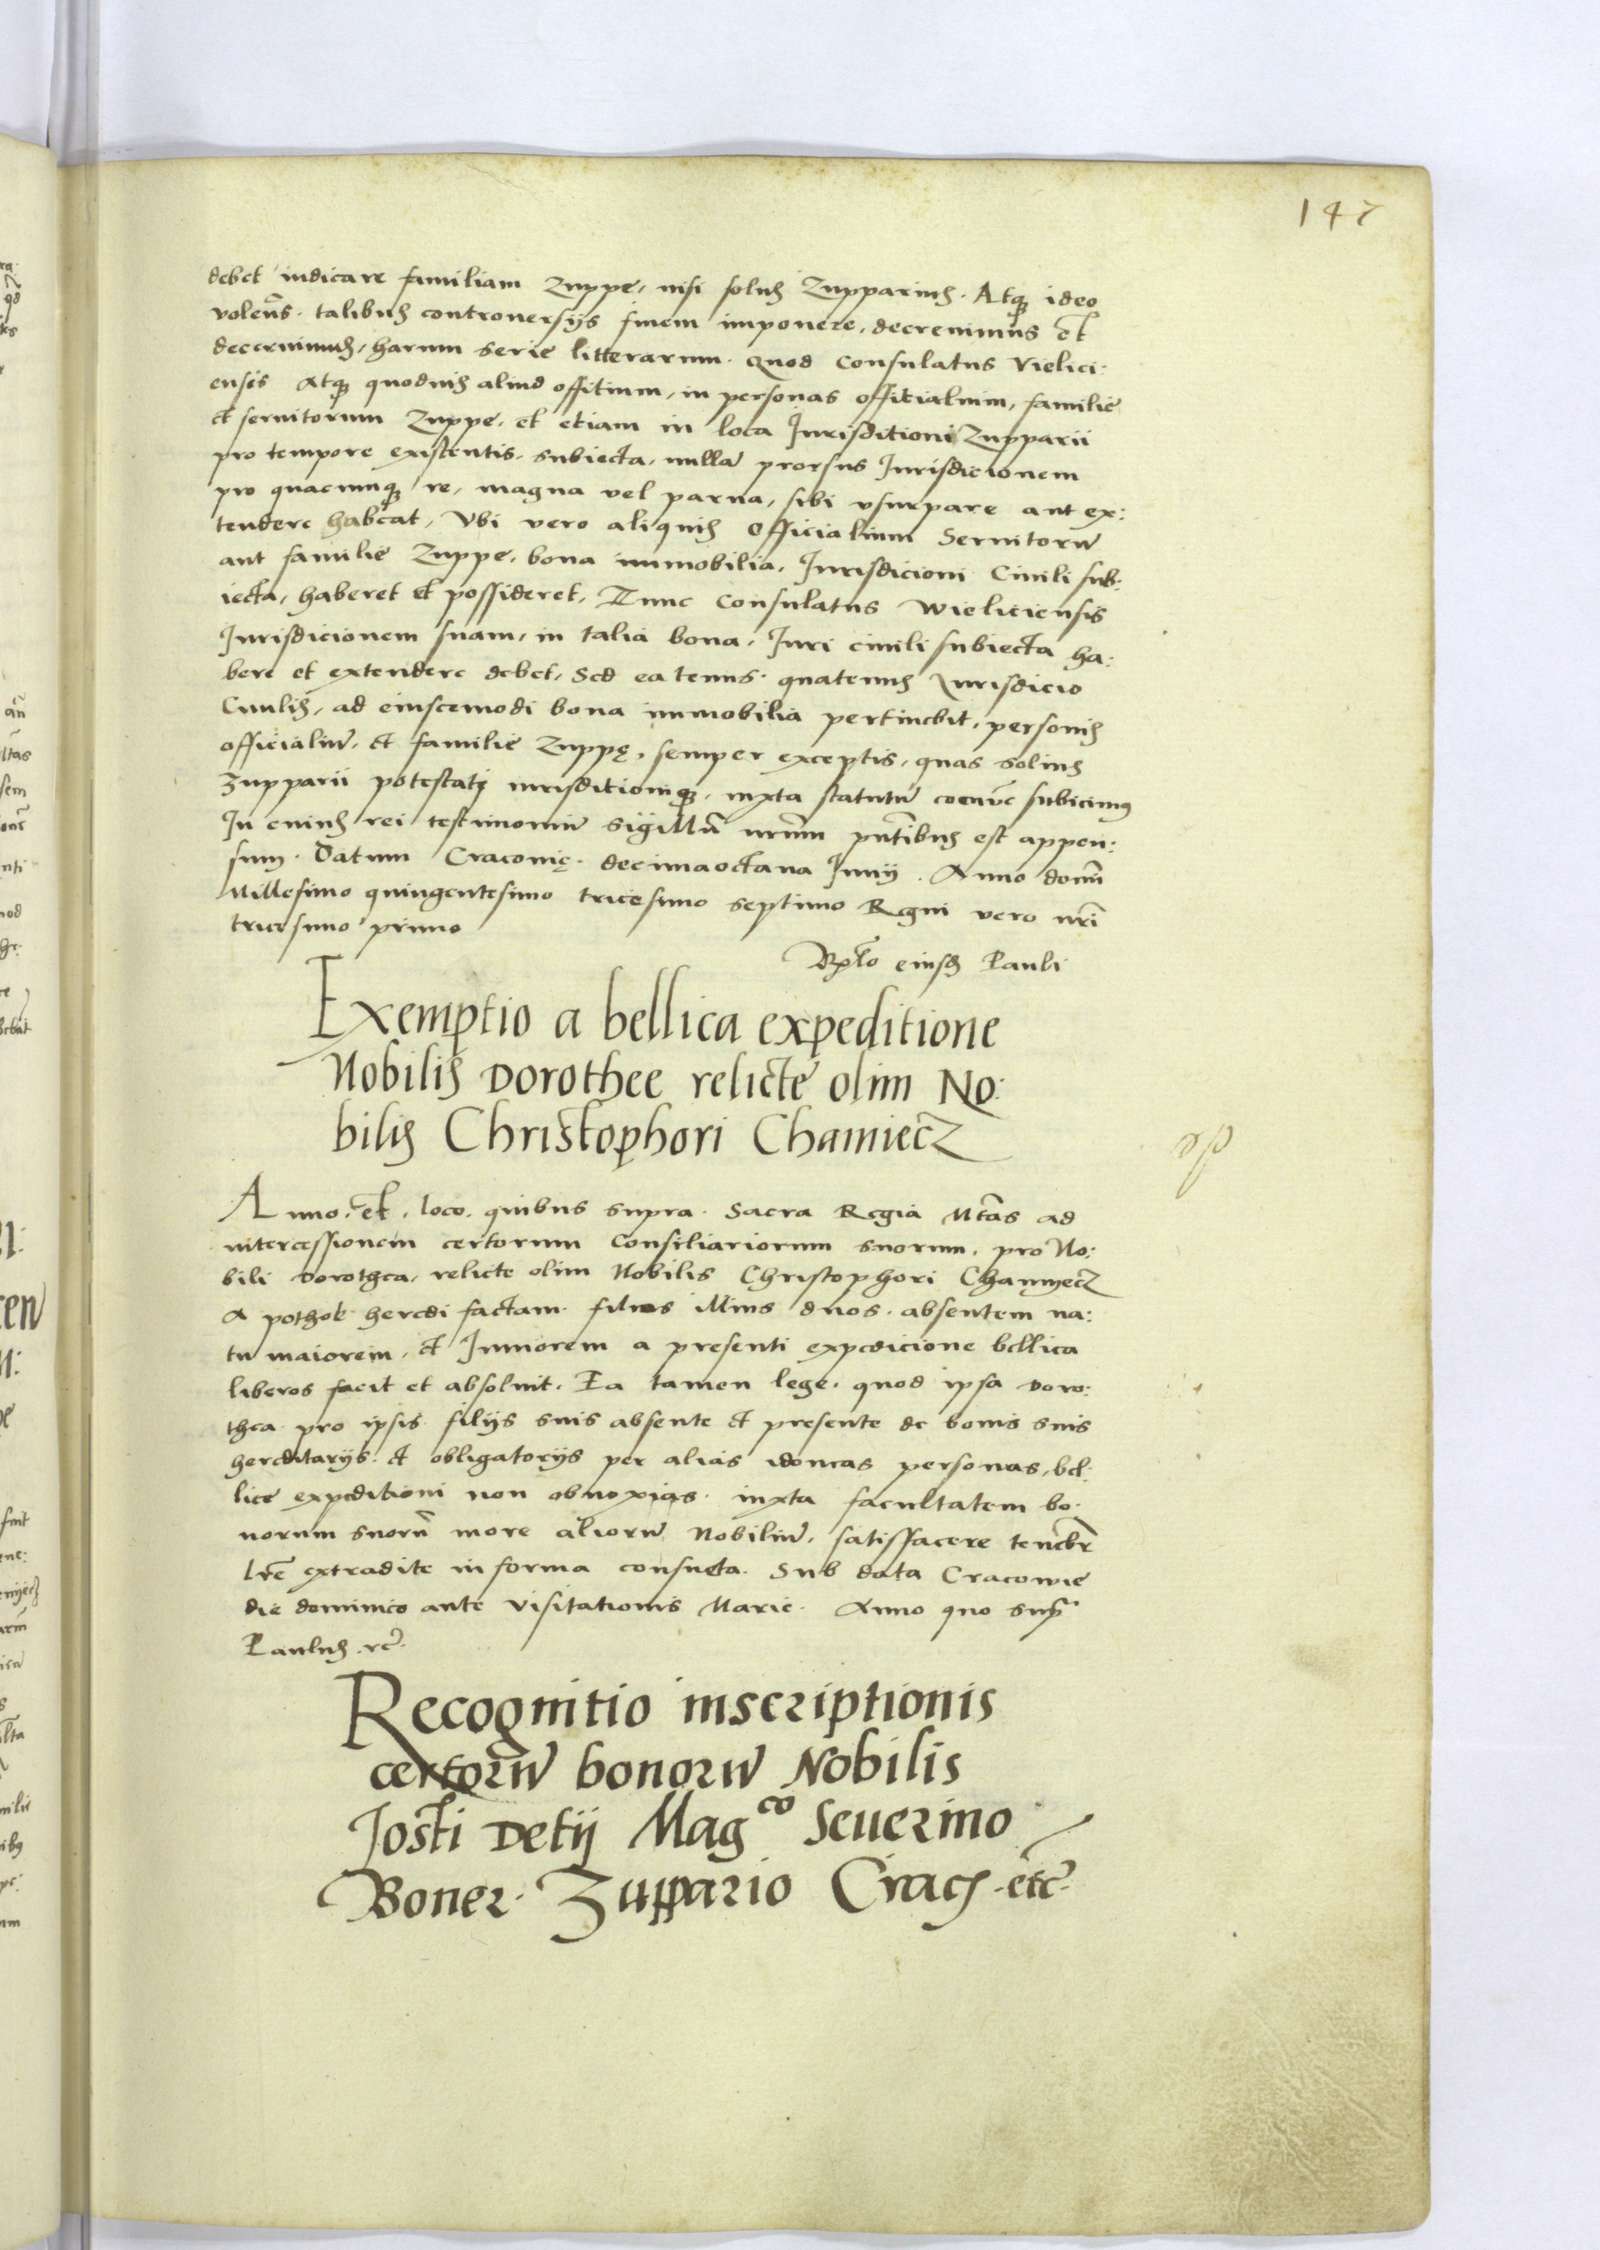 147
debet iudicare familiam Zuppe, nisi solus Zupparius. Atq3 ideo
volens talibus controuersijs finem imponere, decreuimus et
decernimus, harum serie litterarum. Quod Consulatus Vielici:
ensis Atq3 quoduis aliud offitium, in personas officialium, familie
et seruitorum Zuppe, et etiam in loca Jurisditioni Zupparii
pro tempore existentis, subiecta, nullam prorsus Jurisdicionem
pro quacumq3 re, magna vel parua, sibi vsurpare aut ex:
tendere habeat, Vbi vero aliquis Officialium Seruitorum
aut familie Zuppe, bona immobilia, Jurisdicioni Ciuili sub:
iecta, haberet et possideret, Tunc Consulatus Wieliciensis
Jurisdicionem suam, in talia bona, Juri ciuili subiecta ha:
bere et extendere debet, Sed ea tenus quatenus Jurisdicio
Ciuilis, ad eiuscemodi bona immobilia pertinebit, personis
officialium, et familie Zuppę, semper exceptis, quas solius
Zupparii potestati iurisditioniq3, iuxta statutum subicimus
In cuius rei testimonium Sigillum nrum pntibus est appen:
sum. Datum Cracouię decimaoctaua Junij. Anno domi
Millesimo quingentesimo tricesimo septimo Regni vero nri
tricesimo primo
Rlo eiusd Pauli
Exemptio a bellica expeditione
Nobilis Dorothee relicte olim No:
bilis Christophori Chamiecz
Anno et loco quibus supra. Sacra Regia Mtas ad
intercessionem certorum Consiliariorum suorum, pro No:
bili Dorothea, relicte olim Nobilis Christophori Chamyecz
a pothok heredi factam filios illius duos absentem na:
tu maiorem, et Juniorem a presenti expedicione bellica
liberos facit et absoluit. Ea tamen lege, quod ipsa Doro:
thea pro ipsis filijs suis absente et presente de bonis suis
hereditarijs et obligatorijs per alias idoneas personas, bel:
lice expeditioni non obnoxias iuxta facultatem bo:
norum suorum more aliorum Nobilium, satisfacere tenebr
lre extradite in forma consueta. Sub data Cracouie
die dominico ante Visitationis Marie. Anno quo supra
Paulus vc.
Recognitio inscriptionis
certorum bonorum Nobilis
Josti Detij Magco Seuerino
Boner. Zuppario Crac. etc.